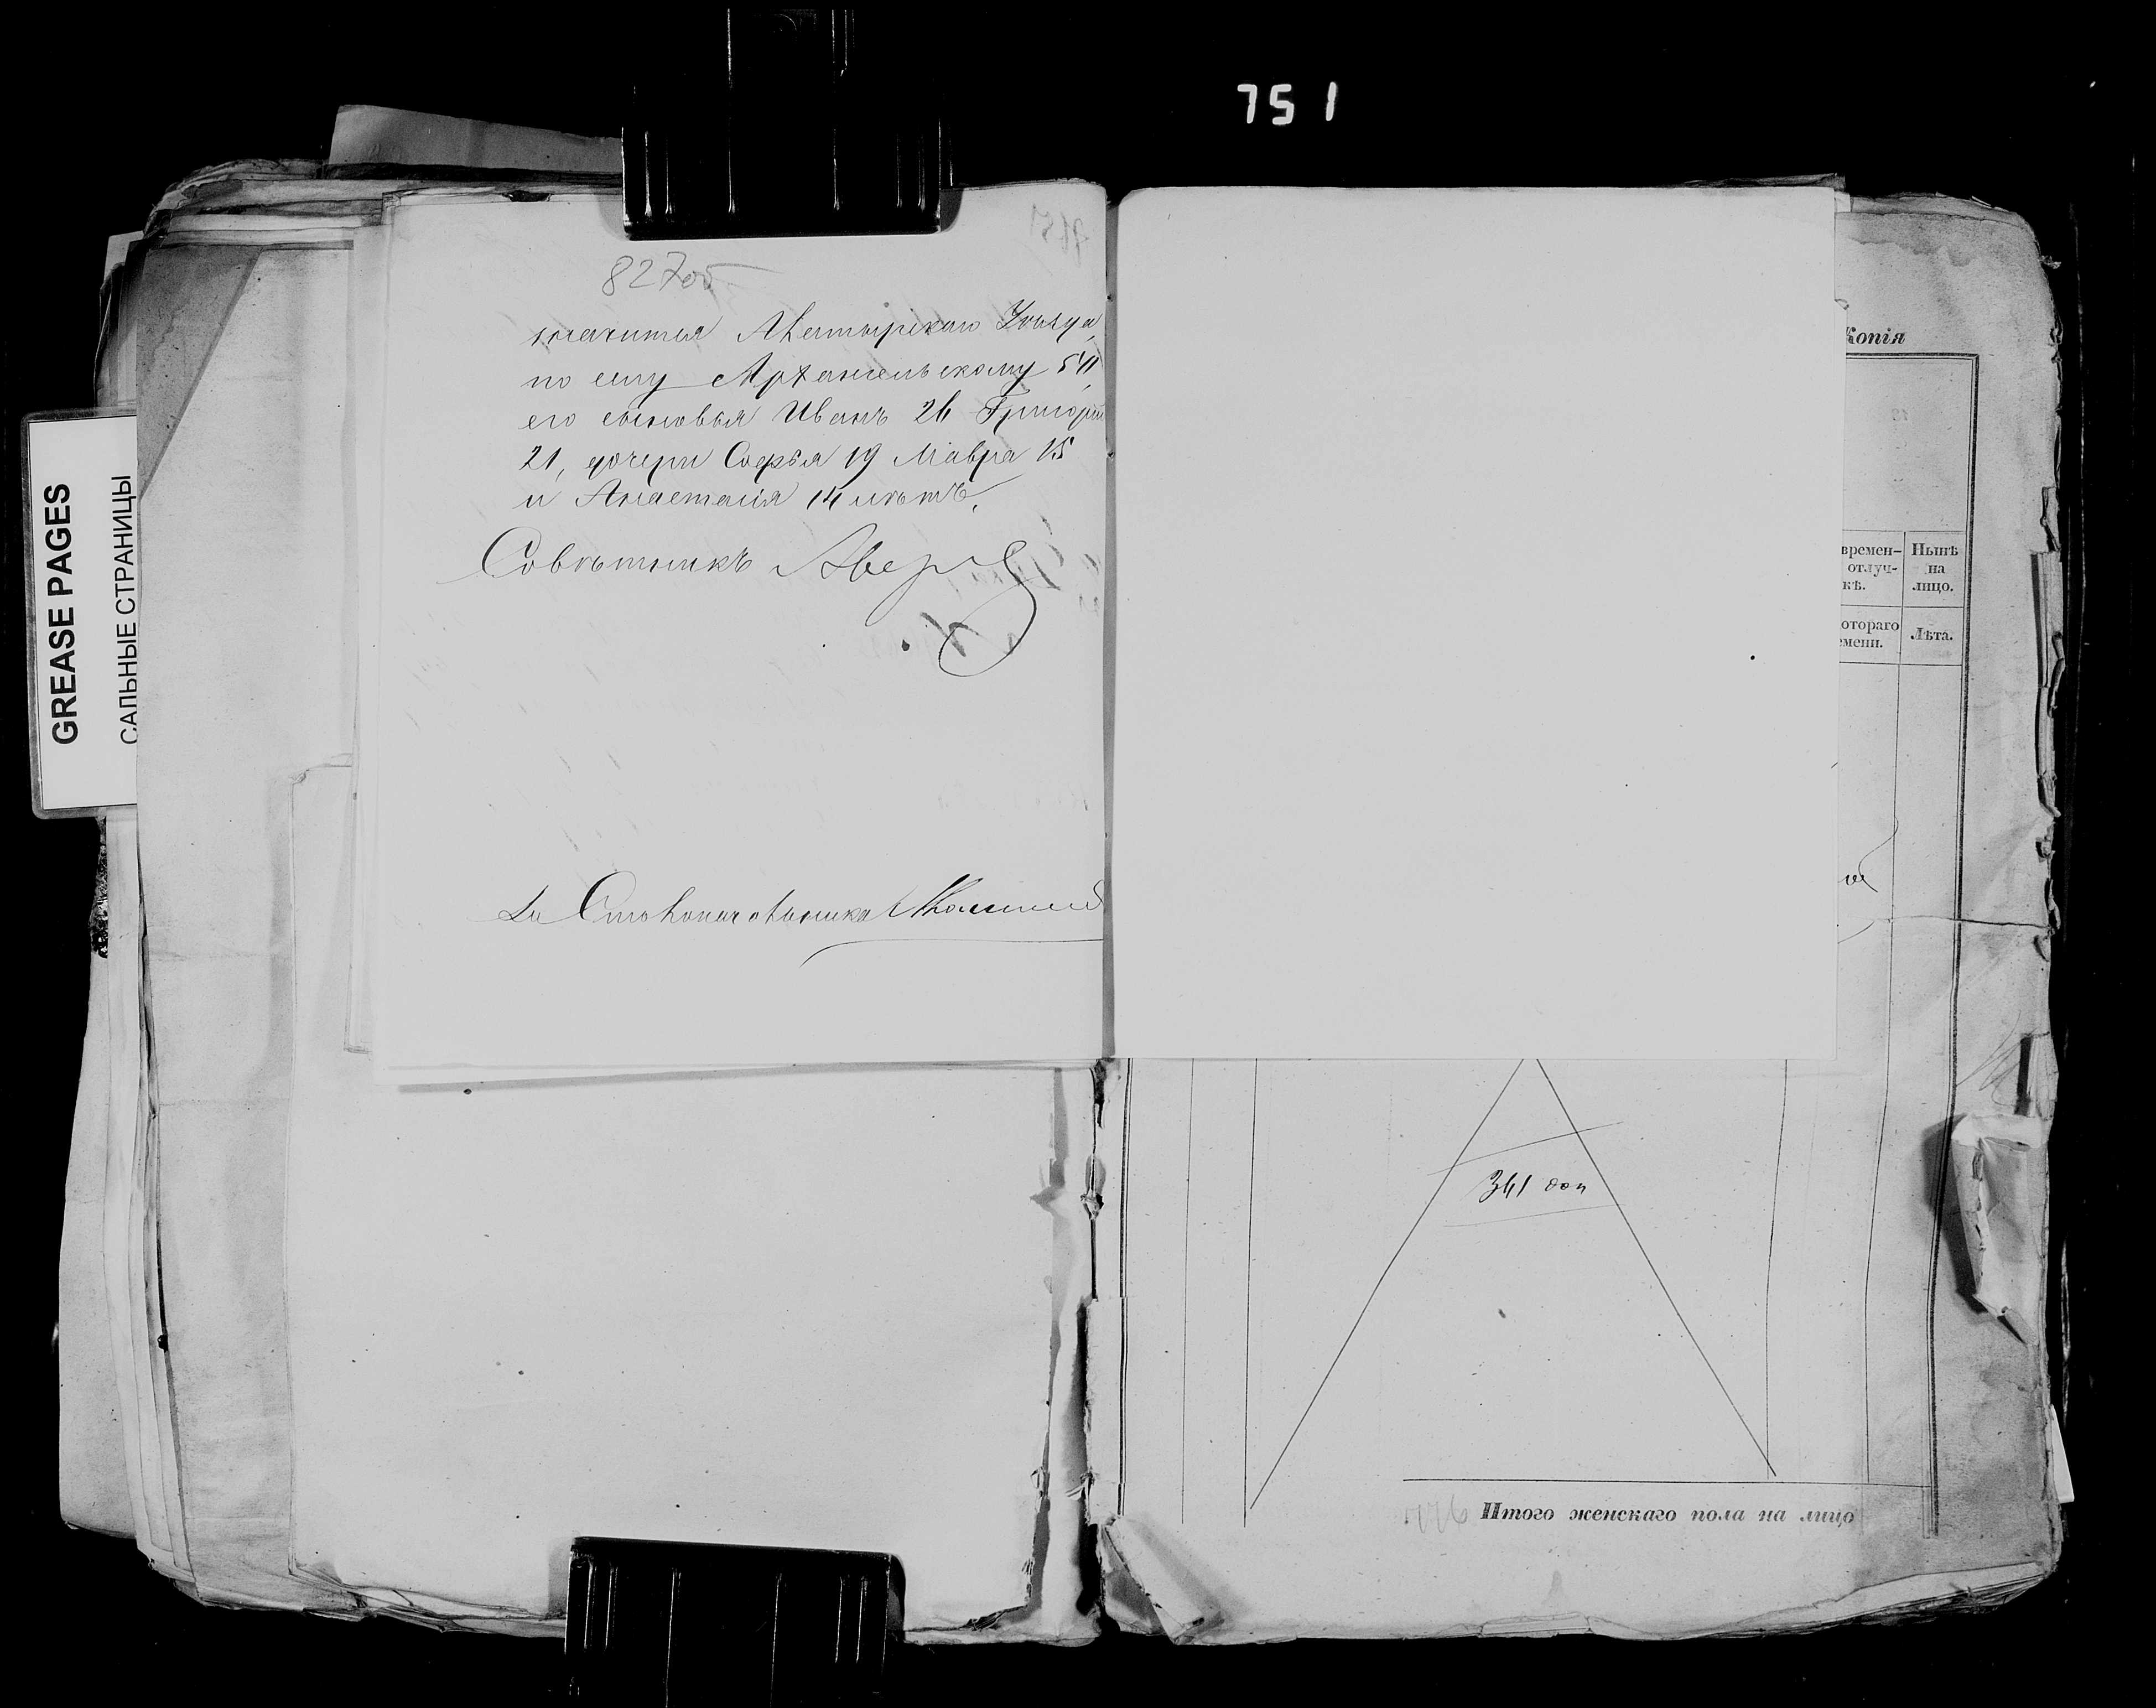 751
GREASE PAGES
САЛЬНЫЕ СТРАНИЦЫ
827об
значится Ахтырскаго Уѣзда,
по селу Архангельскому 54,
его сыновья Иванъ 26 Григорій
21, дочери Софья 19 Мавра 15
и Анастасія 14 лѣтъ.
Совѣтникъ
За Столоначальника
Копія
времен-
отлуч-
кѣ.
Нынѣ
на
лицо.
котораго
емени.
Лѣта.
341 доп
Итого женскаго пола на лицо